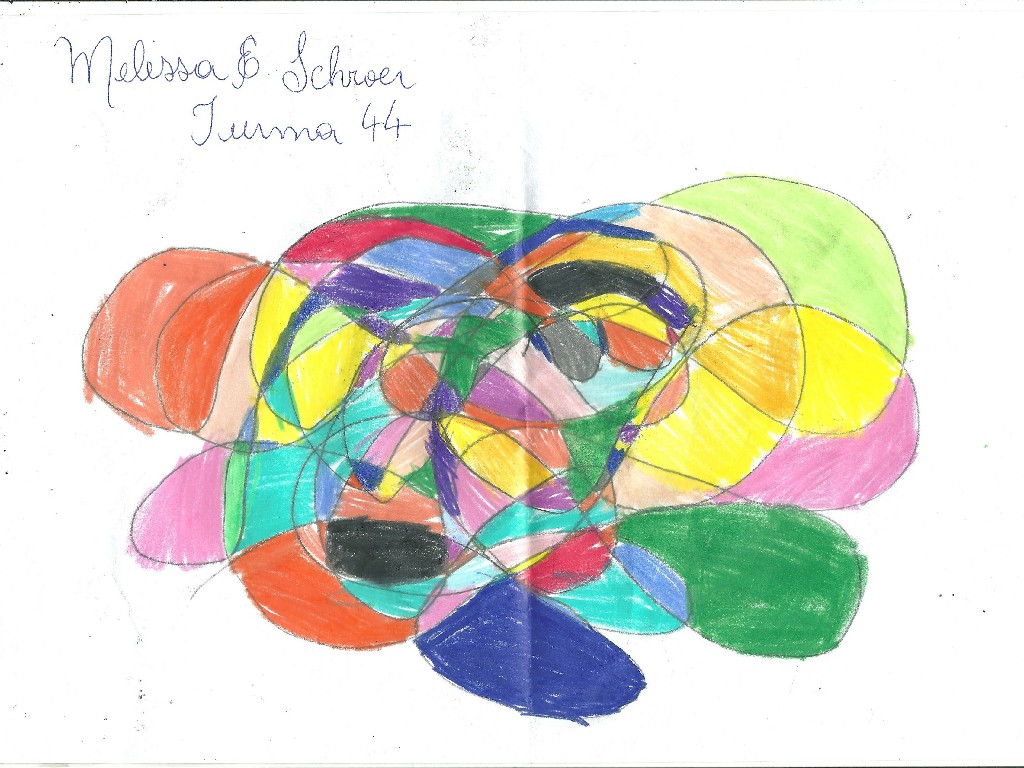 Melissa E. Schroer
Turma 44